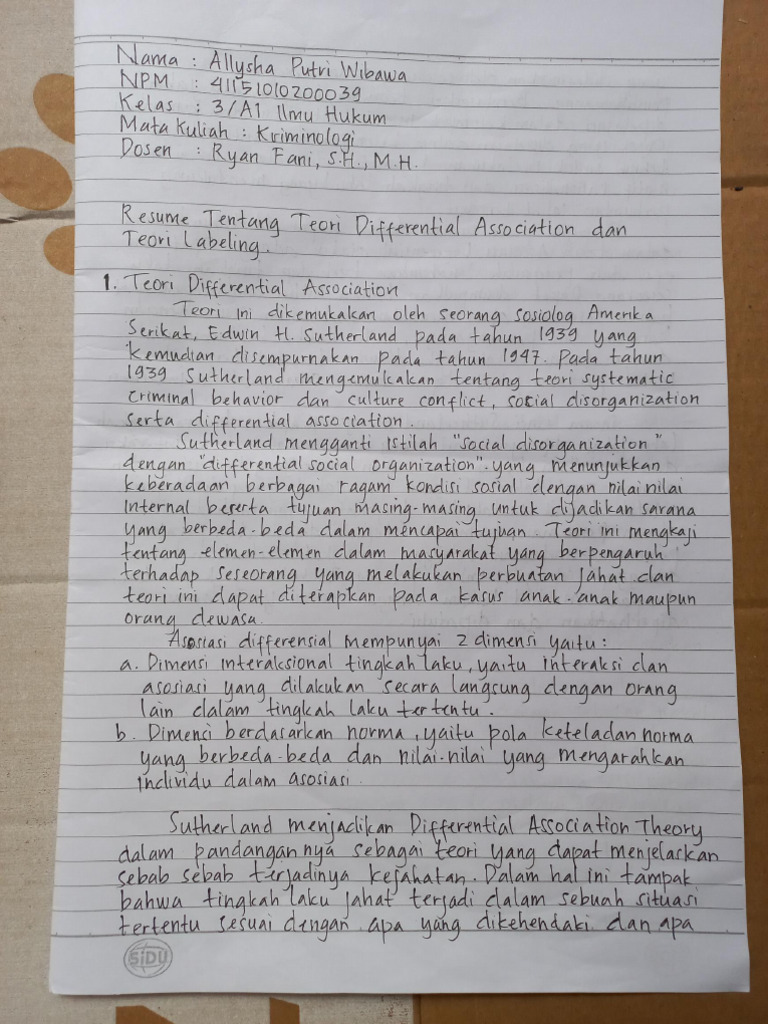 Nama : Allysha Putri Wibawa
NPM : 41151010200039
Kelas : 3/A1 Ilmu Hukum
Mata Kuliah : Kriminologi
Dosen : Ryan Fani, S.H., M.H.
Resume Tentang Teori Differential Association dan
Teori Labeling.
1. Teori Differential Association
Teori ini dikemukakan oleh seorang sosiolog Amerika
Serikat, Edwin H. Sutherland pada tahun 1939 yang
kemudian disempurnakan pada tahun 1947. Pada tahun
1939 Sutherland mengemukakan tentang teori systematic
criminal behavior dan culture conflict, social disorganization
serta differential association.
Sutherland mengganti istilah "social disorganization"
dengan "differential social organization". yang menunjukkan
keberadaan berbagai ragam kondisi sosial dengan nilai nilai
internal beserta tujuan masing-masing untuk dijadikan sarana
yang berbeda-beda dalam mencapai tujuan. Teori ini mengkaji
tentang elemen-elemen dalam masyarakat yang berpengaruh
terhadap seseorang yang melakukan perbuatan jahat dan
teori ini dapat diterapkan pada kasus anak-anak maupun
orang dewasa.
Asosiasi differensial mempunyai 2 dimensi yaitu :
a. Dimensi interaksional tingkah laku, yaitu interaksi dan
asosiasi yang dilakukan secara langsung dengan orang
lain dalam tingkah laku tertentu.
b. Dimenci berdasarkan norma, yaitu pola keteladan norma
yang berbeda-beda dan nilai-nilai yang mengarahkan
individu dalam asosiasi.
Sutherland menjadikan Differential Association Theory
dalam pandangannya sebagai teori yang dapat menjelaskan
sebab sebab terjadinya kejahatan. Dalam hal ini tampak
bahwa tingkah laku jahat terjadi dalam sebuah situasi
tertentu sesuai dengan apa yang dikehendaki dan apa
SiDU